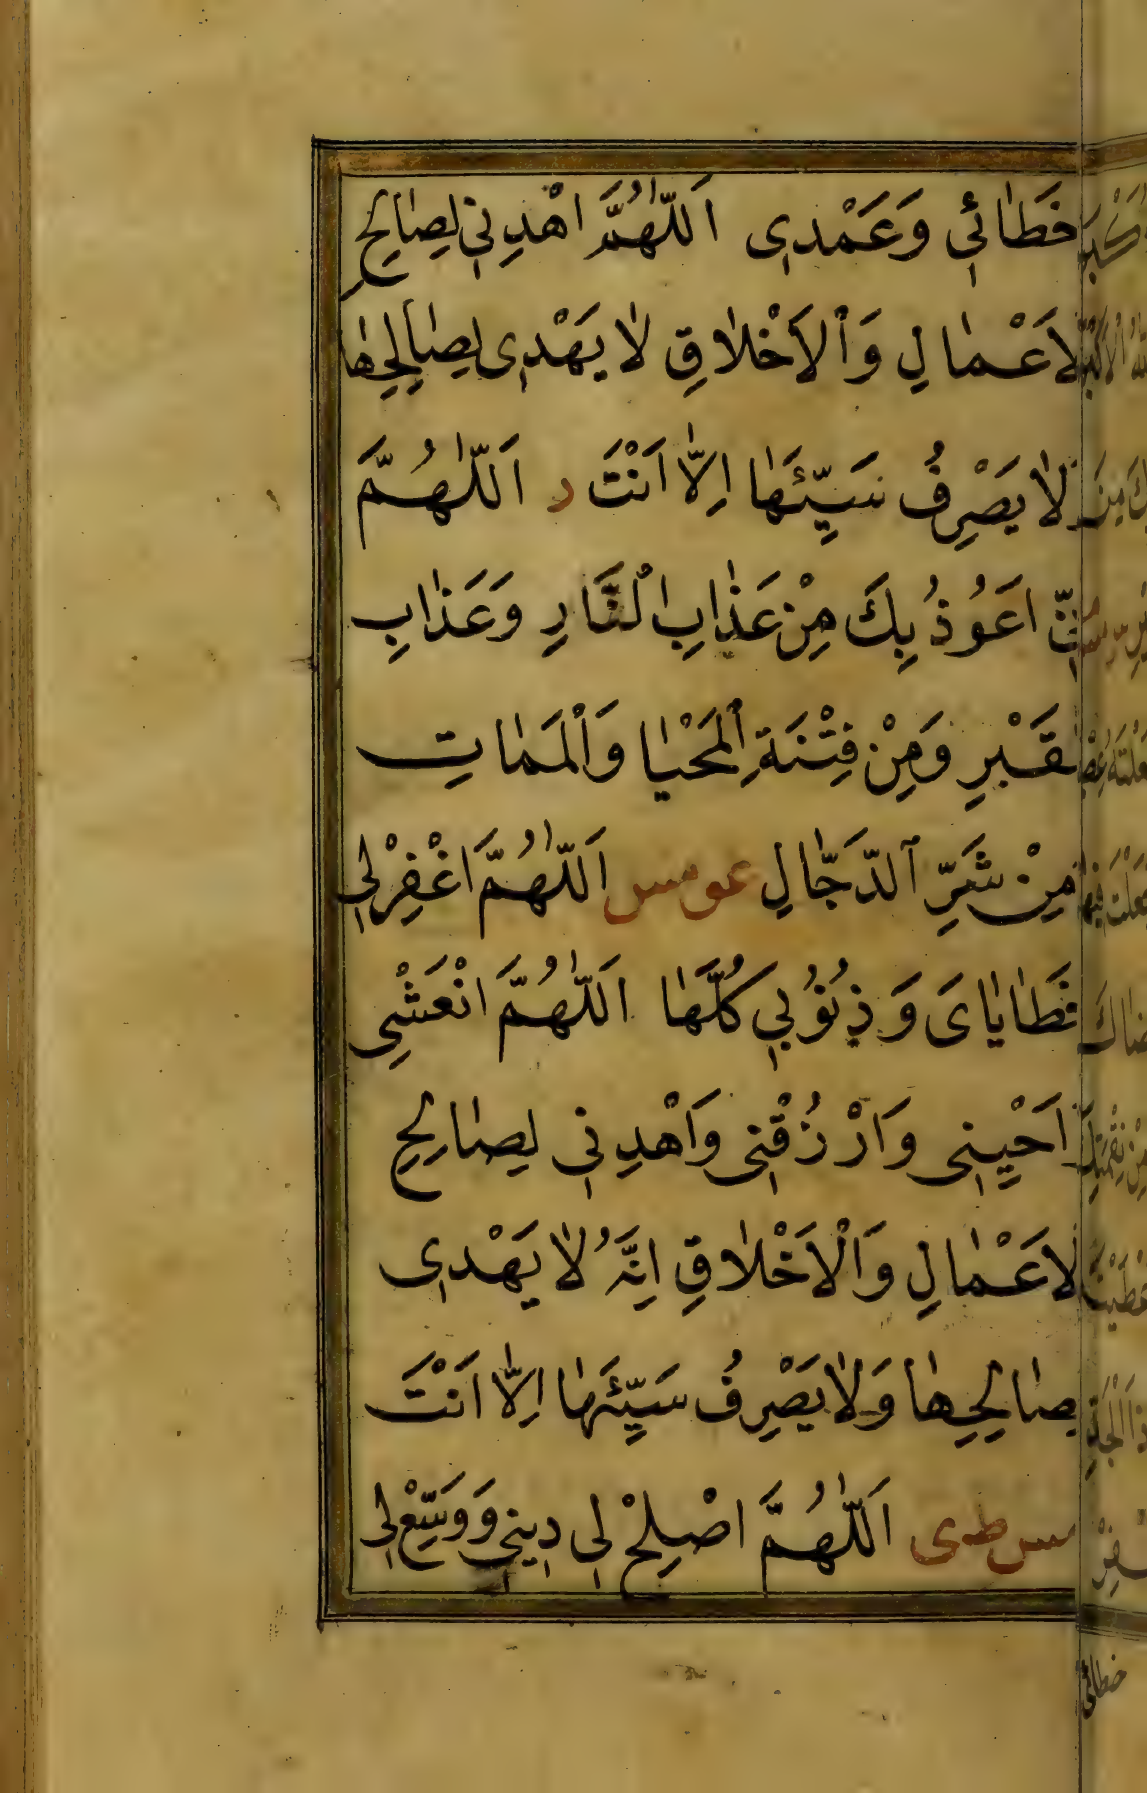 خَطَائِي وَعَمْدِي اَللّٰهُمَّ اهْدِنِي لِصَالِحِ
لاَعْمَالِ وَالْاَخْلَاقِ لَا يَهْدِي لِصَالِحِهَا
لَا يَصْرِفُ سَيِّئَهَا اِلَّا اَنْتَ ر اَللّٰهُمَّ
نِّي اَعُوذُ بِكَ مِنْ عَذَابِ النَّارِ وَعَذَابِ
لقَبْرِ وَمِنْ فِتْنَةِ الْمَحْيَا وَالْمَمَاتِ
مِنْ شَرِّ الدَّجَّالِ عو مس اَللّٰهُمَّ اغْفِرْ لِي
خَطَايَايَ وَذُنُوبِي كُلَّهَا اَللّٰهُمَّ انْعَشْنِي
اَحْيِنِي وَارْزُقْنِي وَاهْدِنِي لِصَالِحِ
لاَعْمَالِ وَالْاَخْلَاقِ اِنَّهُ لَا يَهْدِي
لِصَالِحِهَا وَلَا يَصْرِفُ سَيِّئَهَا اِلَّا اَنْتَ
مس ط ى اَللّٰهُمَّ اصْلِحْ لِي دِينِي وَوَسِّعْ لِي
خطائي